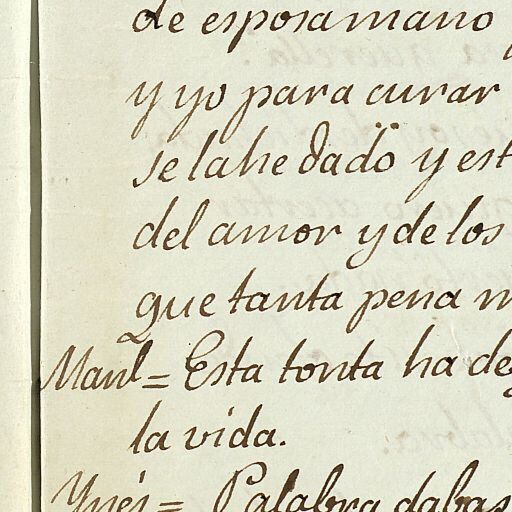 de esposa mano
y yo para curar
se la he dado y est
del amor y de los
que tanta pena m
Manl = Esta tonta ha de
la vida.
Ynés = Palabra dabas